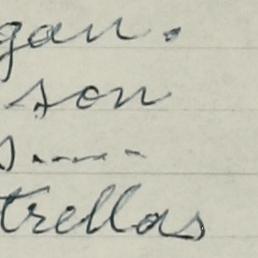 gan.
son
s.....
trellas